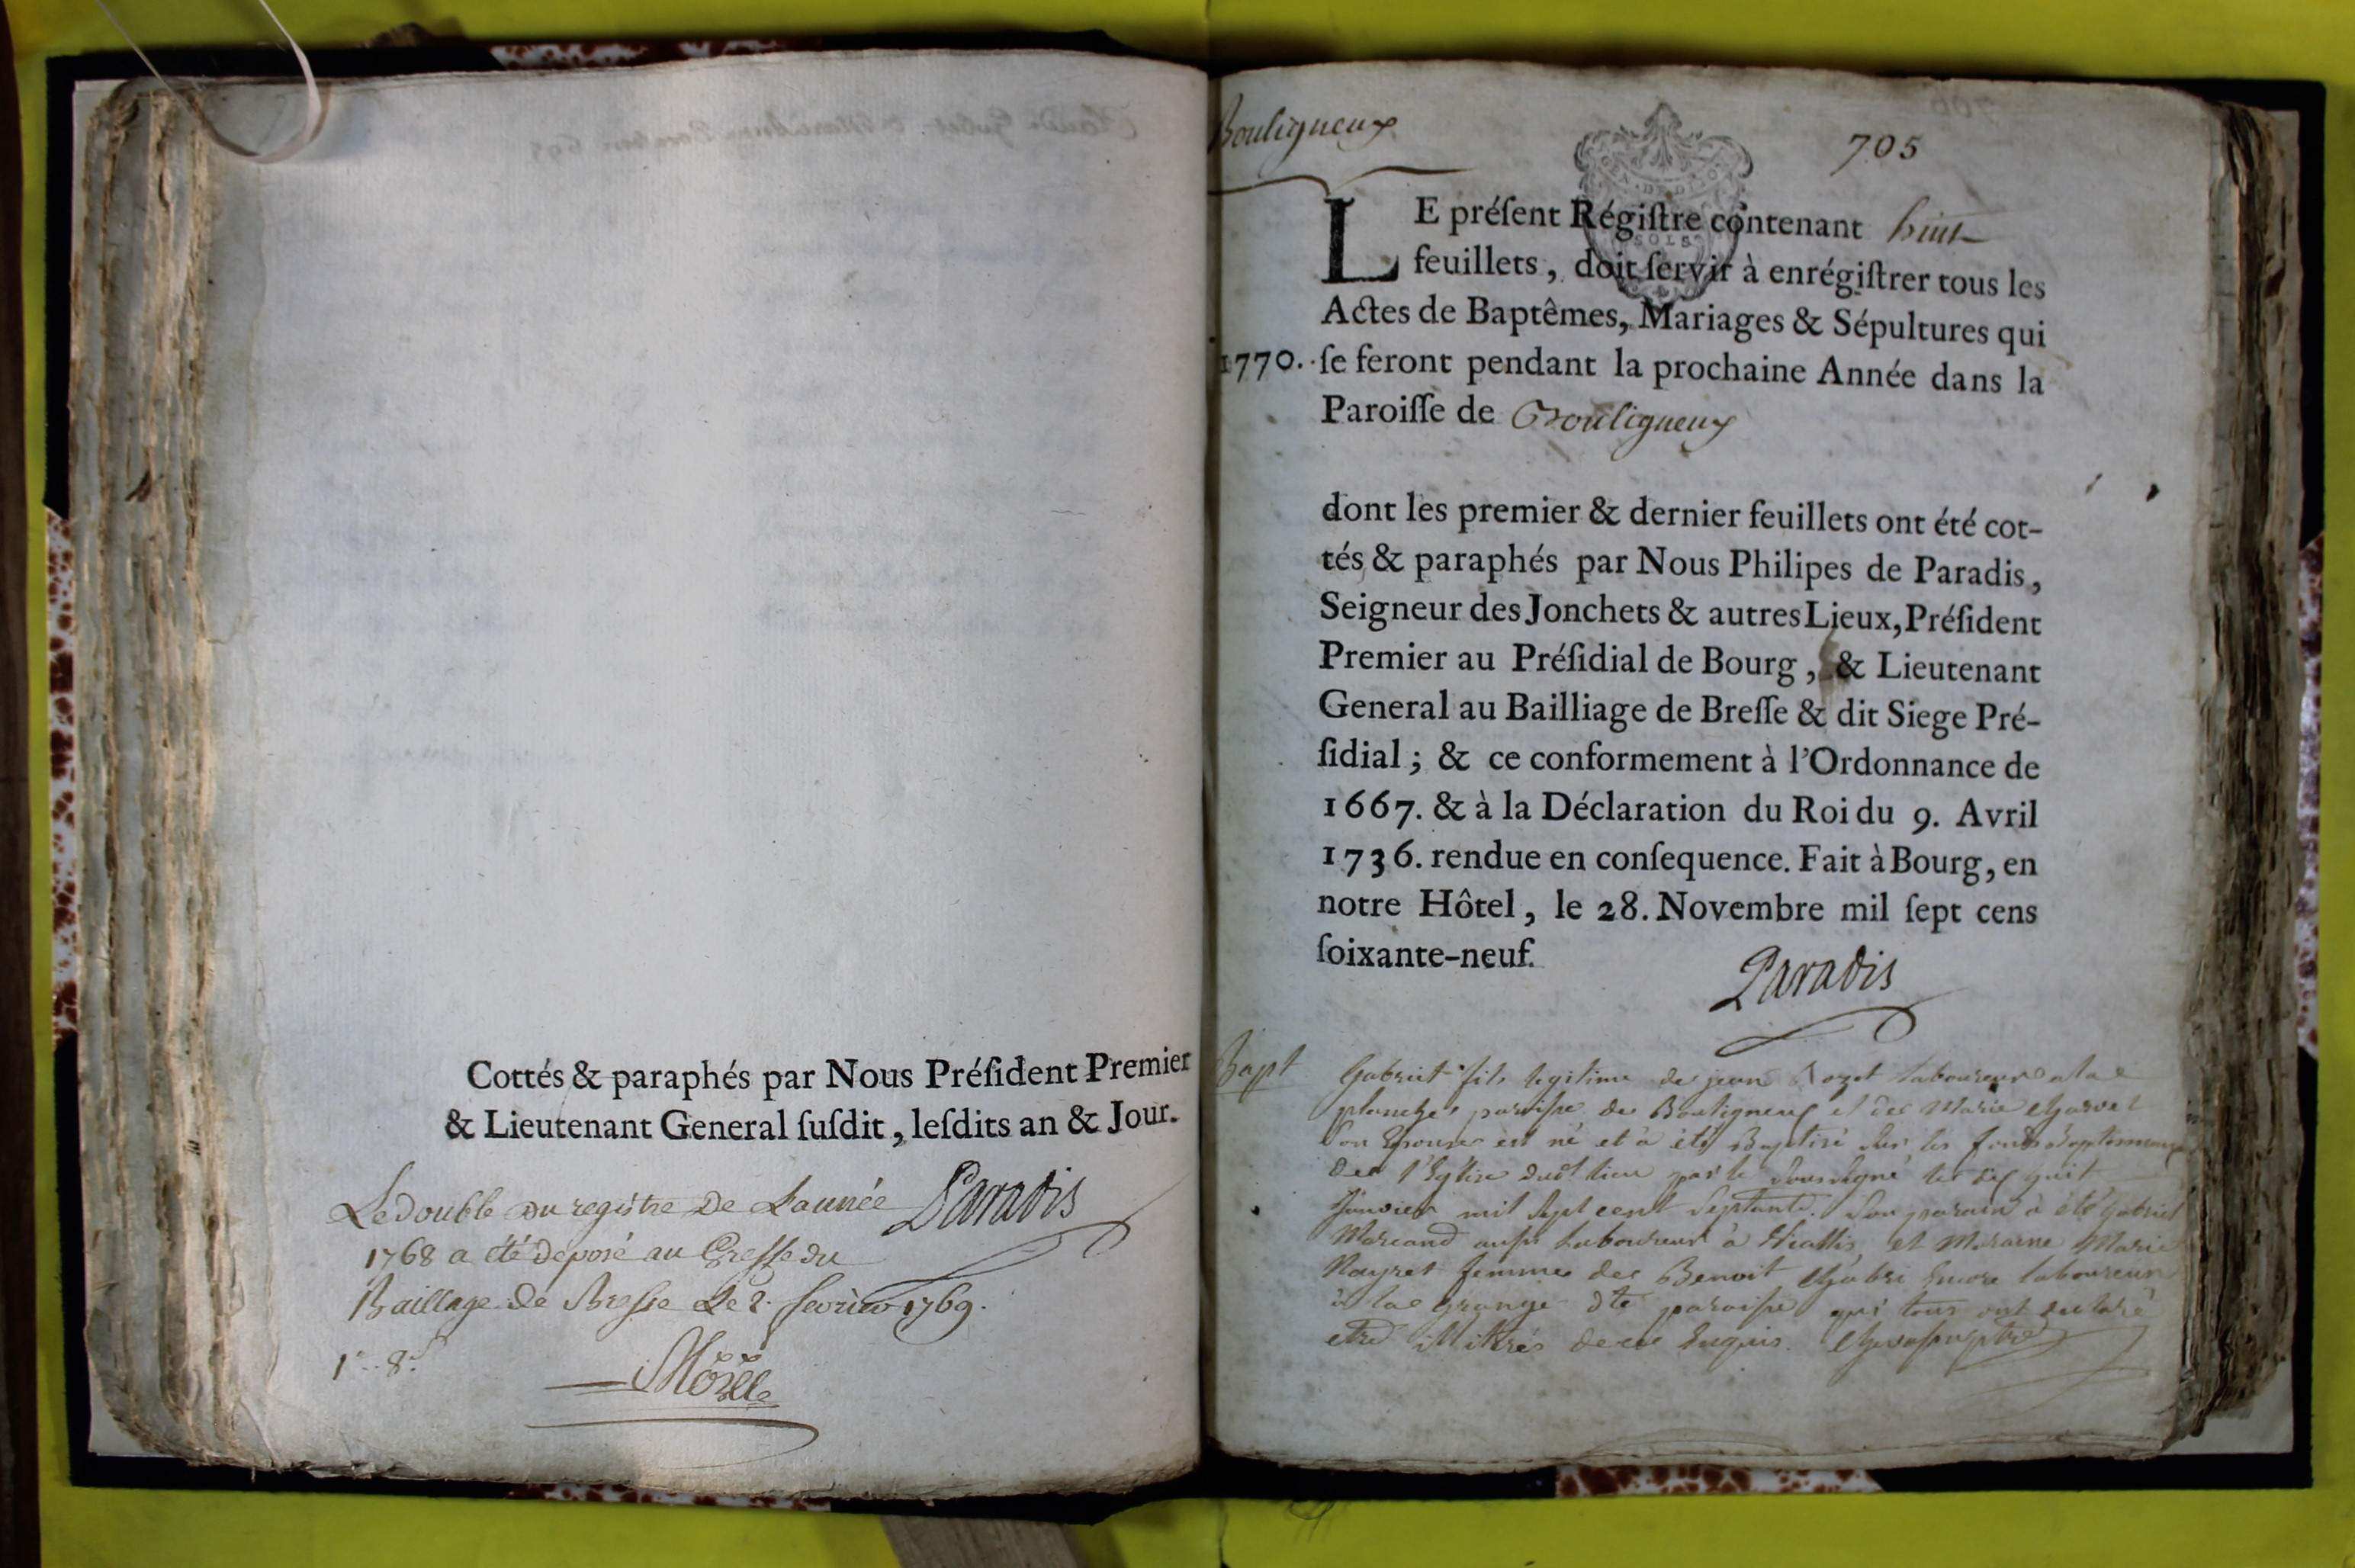 Cottés & paraphés par Nous Préſident Premier
& Lieutenant General ſuſdit, leſdits an & Jour.
Le double du registre De L'année Paradis
1768 a été deposé au Greffe du
Baillage de Bresse Le 2. fevrier 1769.
Bouligneux
705
LE préſent Régiſtre contenant huit
feuillets, doit ſervir à enrégiſtrer tous les
Actes de Baptêmes, Mariages & Sépultures qui
1770. ſe feront pendant la prochaine Année dans la
Paroiſſe de Bouligneux
dont les premier & dernier feuillets ont été cot-
tés & paraphés par Nous Philipes de Paradis,
Seigneur des Jonchets & autres Lieux, Préſident
Premier au Préſidial de Bourg, & Lieutenant
General au Bailliage de Breſſe & dit Siege Pré-
ſidial; & ce conformement à l'Ordonnance de
1667. & à la Déclaration du Roi du 9. Avril
1736. rendue en conſequence. Fait à Bourg, en
notre Hôtel, le 28. Novembre mil ſept cens
ſoixante-neuf.
Paradis
Bapt
Gabriel fils legitime de jean laboureur a la
planche paroisse de Bouligneux et de Marie
Son Epouse est né et a été Baptisé sur les fonds baptismaux
de l'Eglise dudt lieu par le Soussigné le dix huit
Janvier mil sept cent septante. Son parain a été gabriel
Marcand aussi laboureur à et Maraine Marie
Nayret femme de Benoit encore laboureur
à la grange dte paroisse qui tous ont declaré
etre illitérés de ce Enquis.